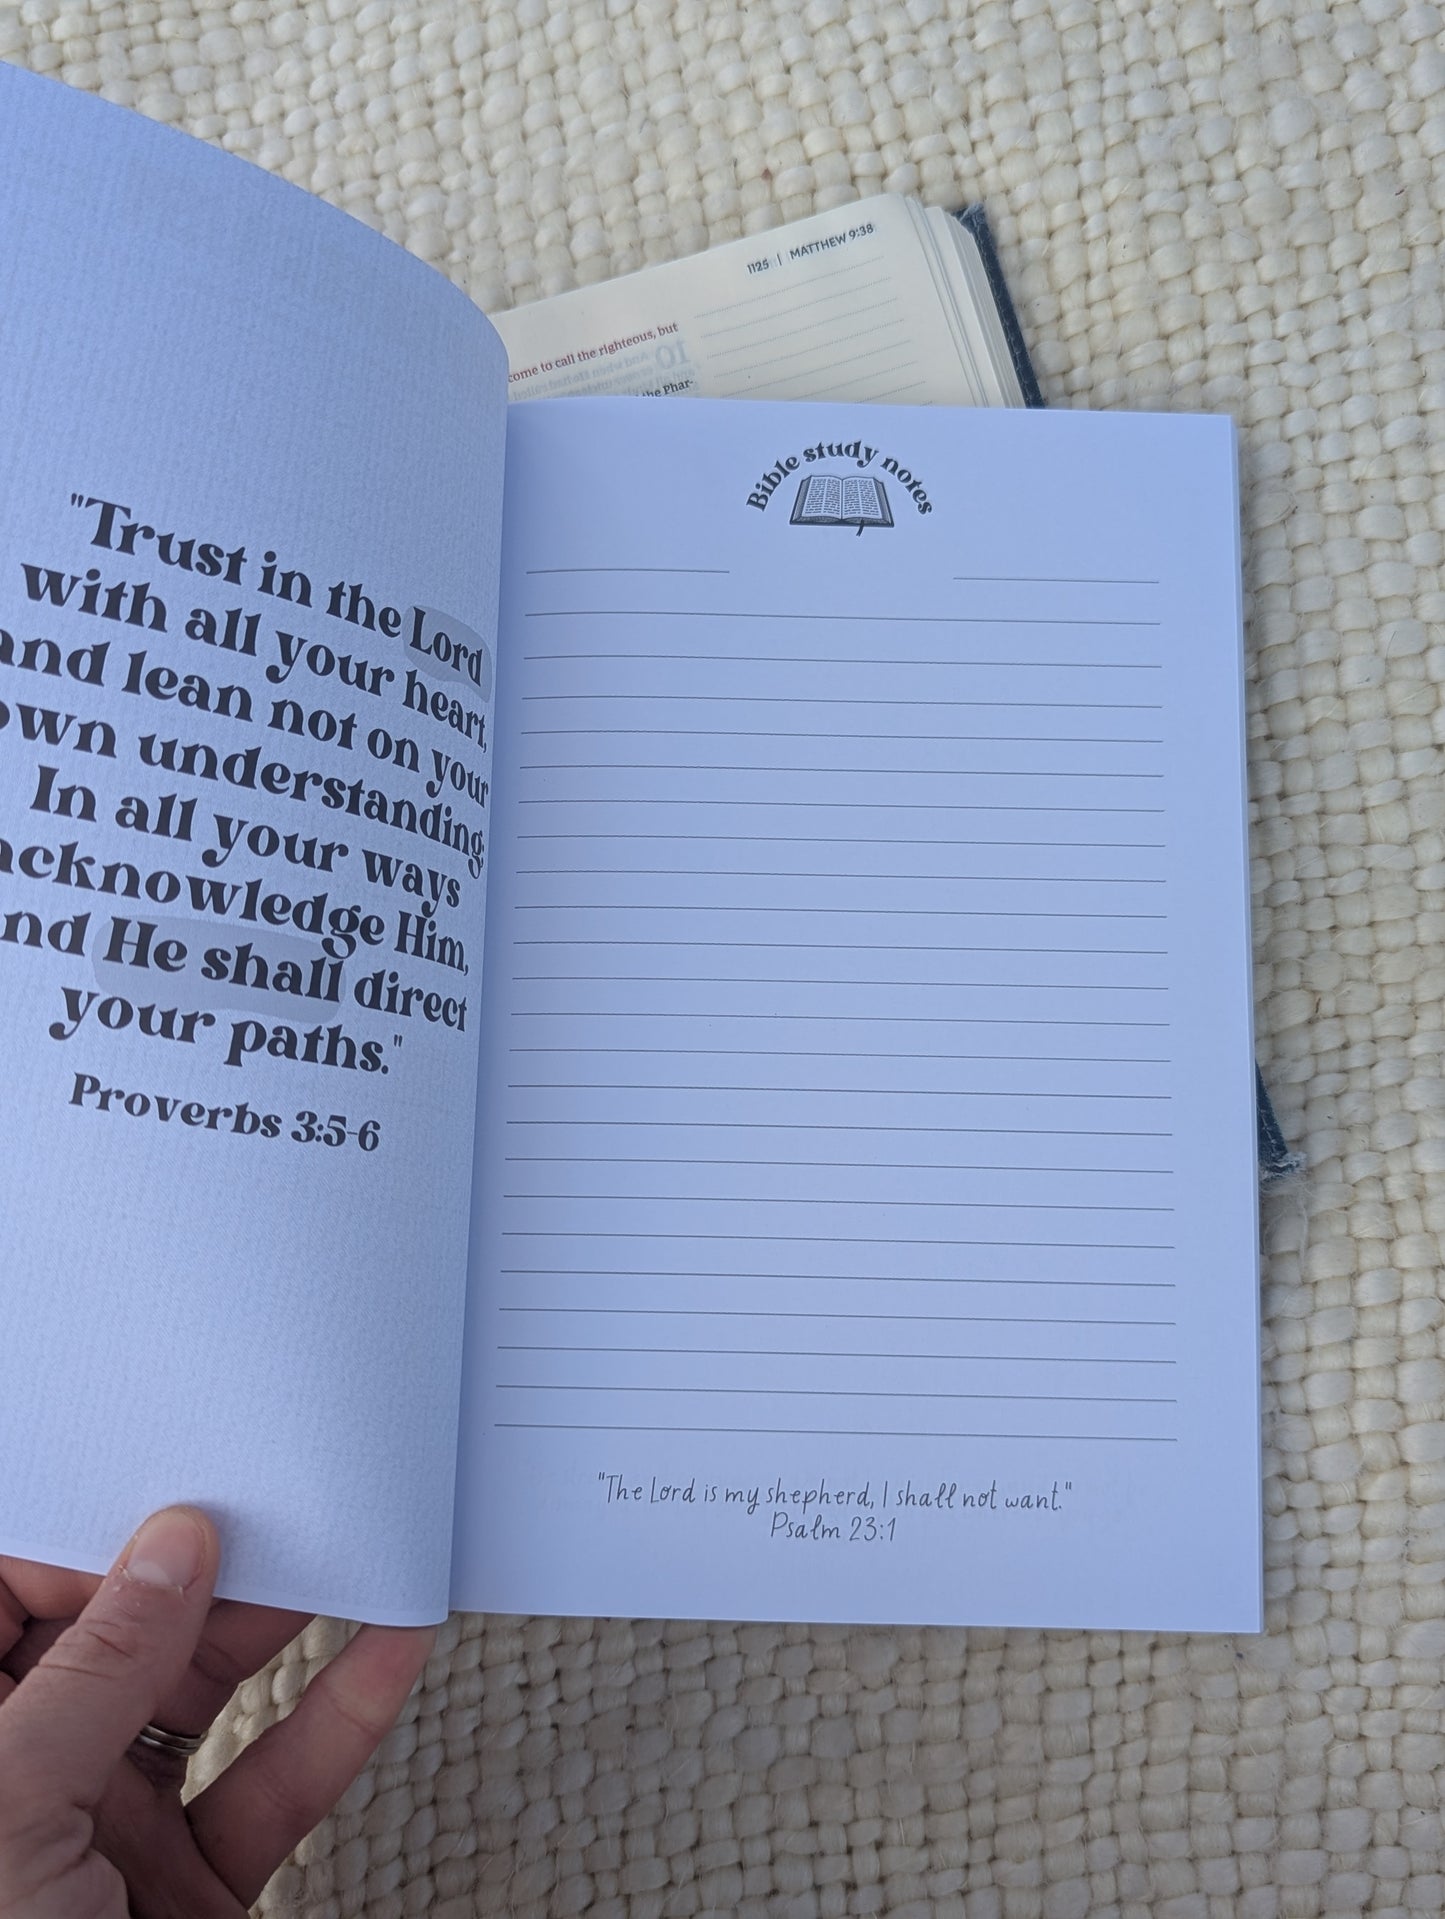 "Trust in the Lord
with all your heart,
and lean not on your
own understanding
In all your ways
acknowledge Him,
and He shall direct
your paths."
Proverbs 3:5-6
1125 | MATTHEW 9:38
come to call the righteous, but
the Phar-
Bible study notes
"The Lord is my shepherd, I shall not want."
Psalm 23:1